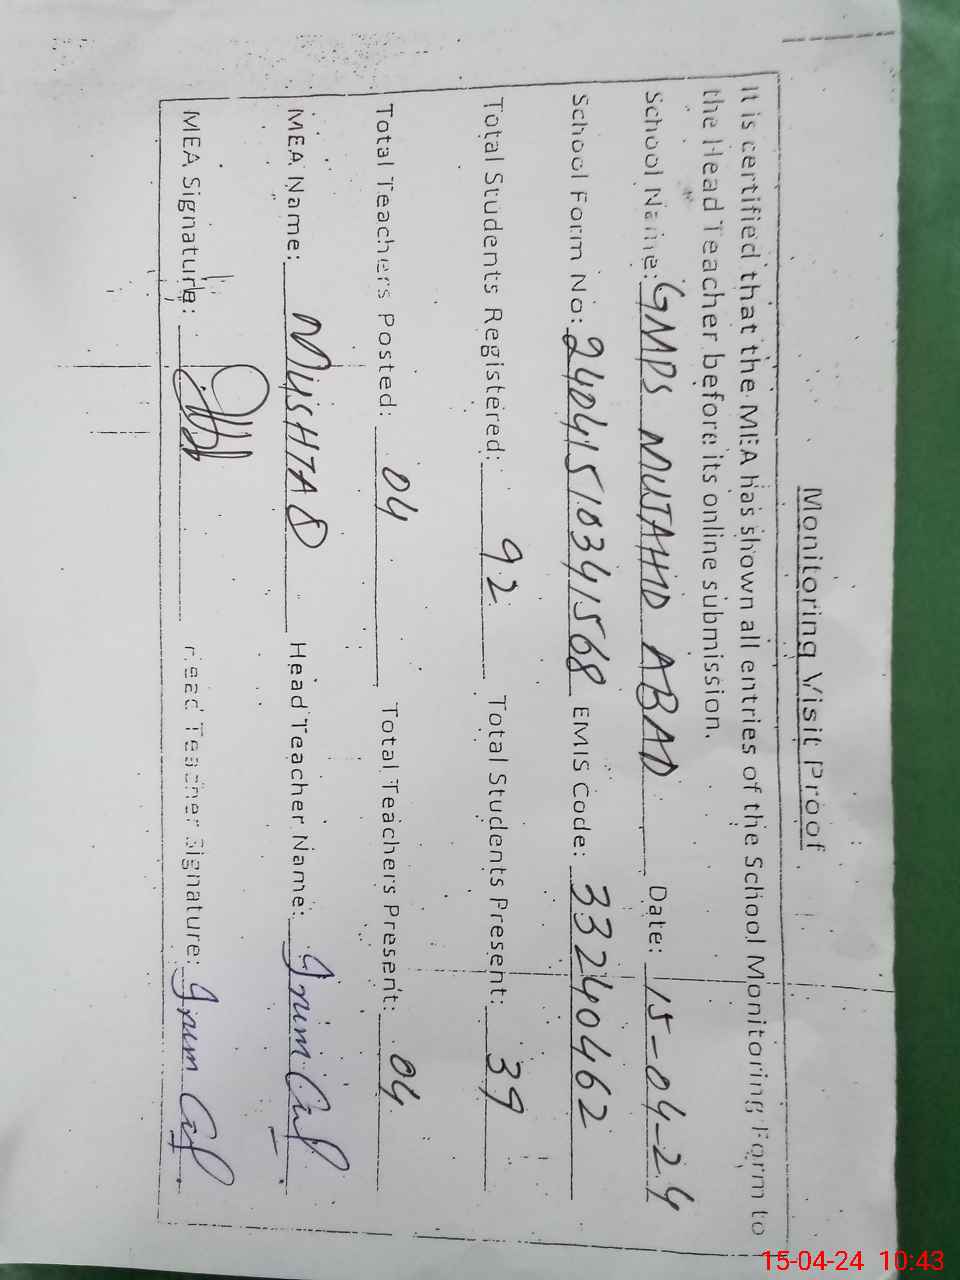 Monitoring Visit Proof
It is certified that the MEA has shown all entries of the School Monitoring Form to
the Head Teacher before its online submission.
School Name: GMPS MUJAHID ABAD Date: 15-04-24
School Form No: 24041510341568 EMIS Code: 33240462
Total Students Registered: 92 Total Students Present: 39
Total Teachers Posted: 04 Total Teachers Present: 04
MEA Name: MUSHTAQ Head Teacher Name:
MEA Signature: Head Teacher Signature:
15-04-24 10:43